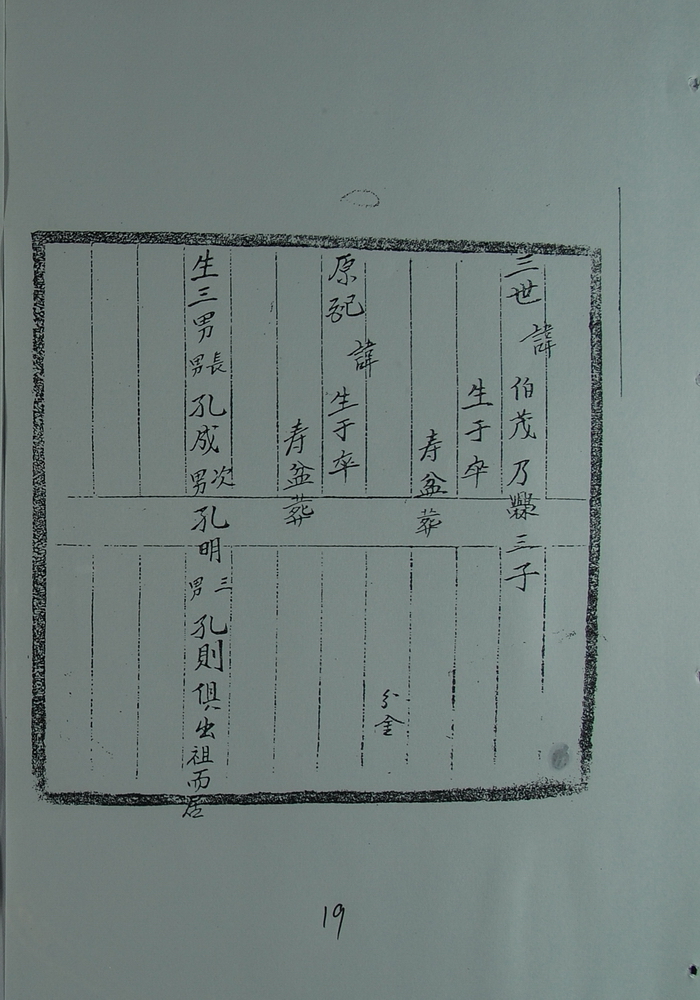 三世 諱 伯茂 乃爨三子
生于卒
寿盆葬
分金
原配 諱 生于卒
寿盆葬
生三男 長男 孔成 次男 孔明 三男 孔則 俱出祖而居
19